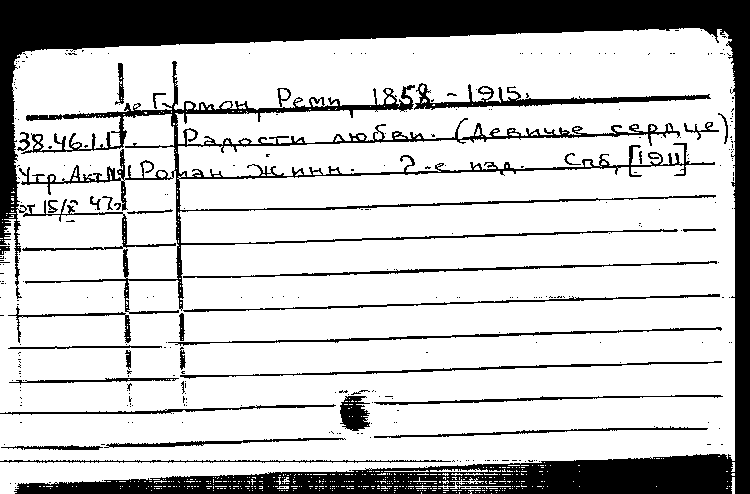 де Гурмон, Реми, 1858 - 1915.
38.46.1.Г. Радости любви. (Девичье сердце)
Утр. Акт №1 Роман Жинн. 2-е изд. Спб, [1911].
от 15/X 47г.